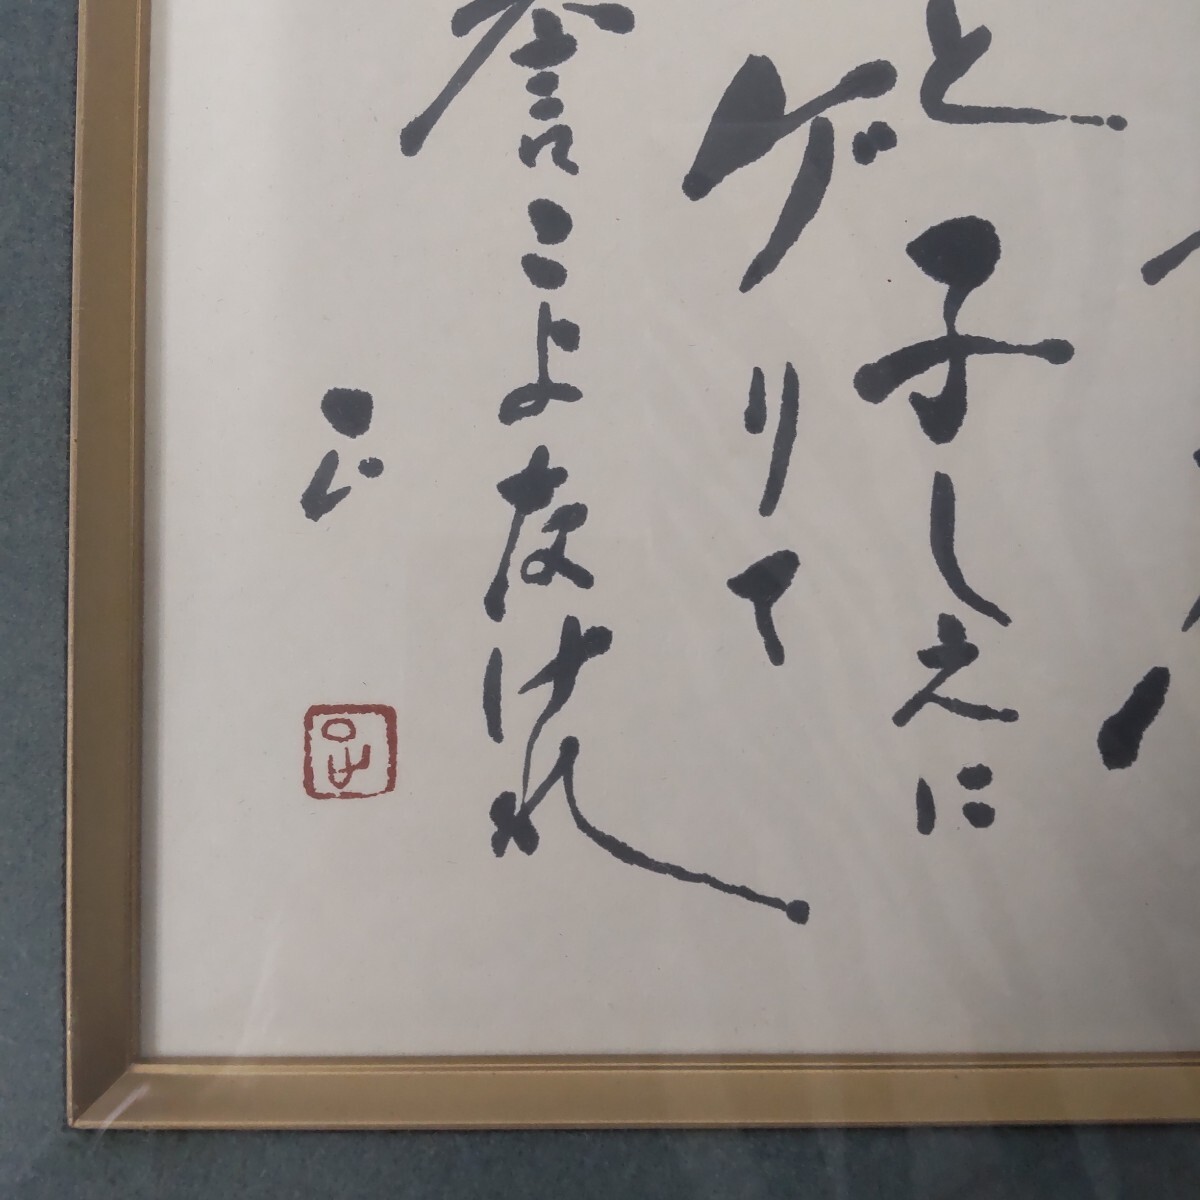 と子しえに
ゲりて
誉こよなけれ